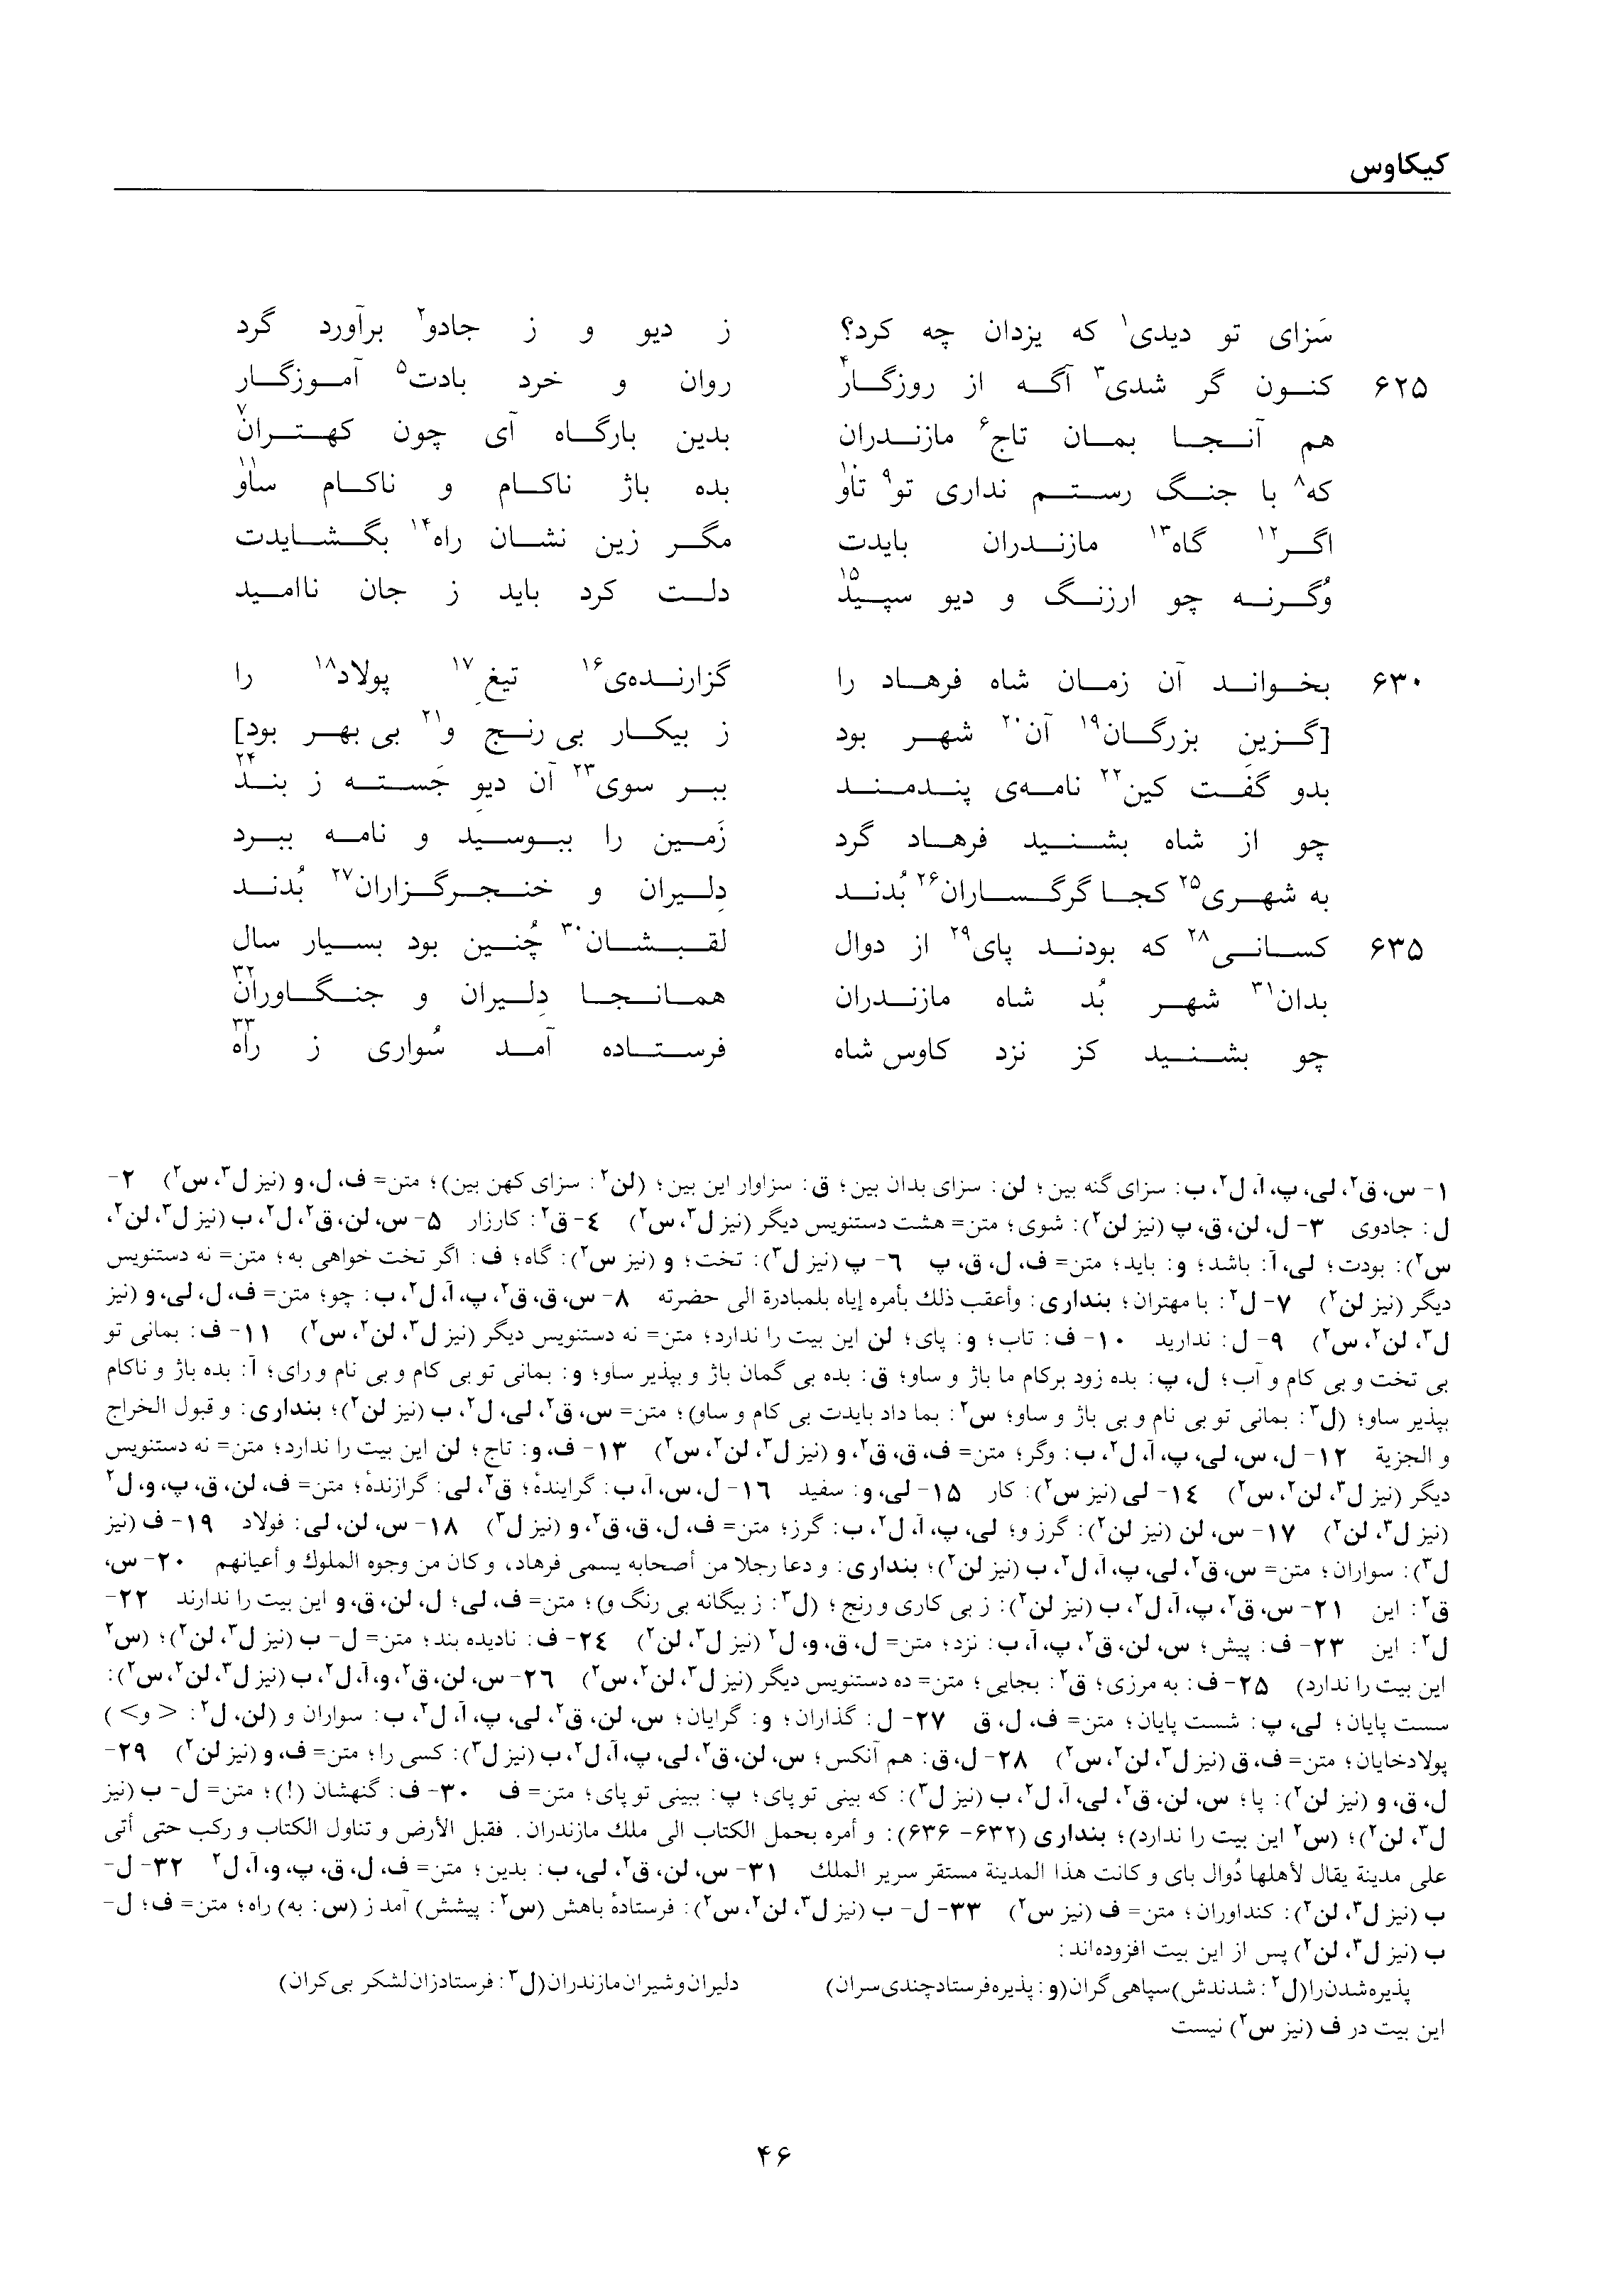 کیکاوس
سَزای تو دیدی۱ که یزدان چه کرد؟ ز دیو و ز جادو۲ برآورد گرد
۶۲۵ کنون گر شدی۳ آگه از روزگار۴ روان و خرد بادت۵ آموزگار
هم آنجا بمان تاج۶ مازندران بدین بارگاه آی چون کهتران۷
که۸ با جنگ رستم نداری تو۹ تاو۱۰ بده باژ ناکام و ناکام ساو۱۱
اگر۱۲ گاه۱۳ مازندران بایدت مگر زین نشان راه۱۴ بگشایدت
وُگرنه چو ارژنگ و دیو سپید۱۵ دلت کرد باید ز جان ناامید
۶۳۰ بخواند آن زمان شاه فرهاد را گزارنده‌ی۱۶ تیغِ۱۷ پولاد۱۸ را
[گزینِ بزرگان۱۹ آن۲۰ شهر بود ز بیکار بی رنج و۲۱ بی بهر بود]
بدو گفت کین۲۲ نامه‌ی پندمند ببر سوی۲۳ آن دیوِ جَسته ز بند۲۴
چو از شاه بشنید فرهاد گرد زَمین را ببوسید و نامه ببرد
به شهری۲۵ کجا گرگساران۲۶ بُدند دِلیران و خنجرگزاران۲۷ بُدند
۶۳۵ کسانی۲۸ که بودند پای۲۹ از دوال لقبشان۳۰ چُنین بود بسیار سال
بدان۳۱ شهر بُد شاه مازندران همانجا دِلیران و جنگاوران۳۲
چو بشنید کز نزد کاوس شاه فرستاده آمد سُواری ز راه۳۳
۱- س، ق۲، لی، پ، آ، ل۲، ب: سزای گنه بین؛ لن: سزای بدان بین؛ ق: سزاوار این بین؛ (لن۲: سزای کهن بین)؛ متن= ف، ل، و (نیز ل۳، س۲) ۲-
ل: جادوی ۳- ل، لن، ق، پ (نیز لن۲): شوی؛ متن= هشت دستنویس دیگر (نیز ل۳، س۲) ۴- ق۲: کارزار ۵- س، لن، ق۲، ل۲، ب (نیز ل۳، لن۲،
س۲): بودت؛ لی، آ: باشد؛ و: باید؛ متن= ف، ل، ق، پ ۶- پ (نیز ل۳): تخت؛ و (نیز س۲): گاه؛ ف: اگر تخت خواهی به؛ متن= نه دستنویس
دیگر (نیز لن۲) ۷- ل۲: با مهتران؛ بنداری: وأعقب ذلك بأمره إياه بلمبادرة الى حضرته ۸- س، ق، ق۲، پ، آ، ل۲، ب: چو؛ متن= ف، ل، لی، و (نیز
ل۳، لن۲، س۲) ۹- ل: ندارید ۱۰- ف: تاب؛ و: پای؛ لن این بیت را ندارد؛ متن= نه دستنویس دیگر (نیز ل۳، لن۲، س۲) ۱۱- ف: بمانی تو
بی تخت و بی کام و آب؛ ل، پ: بده زود برکام ما باژ و ساو؛ ق: بده بی گمان باژ و بپذیر ساو؛ و: بمانی تو بی کام و بی نام و رای؛ آ: بده باژ و ناکام
بپذیر ساو؛ (ل۳: بمانی تو بی نام و بی باژ و ساو؛ س۲: بما داد بایدت بی کام و ساو)؛ متن= س، ق۲، لی، ل۲، ب (نیز لن۲)؛ بنداری: و قبول الخراج
و الجزية ۱۲- ل، س، لی، پ، آ، ل۲، ب: وگر؛ متن= ف، ق، ق۲، و (نیز ل۳، لن۲، س۲) ۱۳- ف، و: تاج؛ لن این بیت را ندارد؛ متن= نه دستنویس
دیگر (نیز ل۳، لن۲، س۲) ۱۴- لی (نیز س۲): کار ۱۵- لی، و: سفید ۱۶- ل، س، آ، ب: گراینده‌ٔ؛ ق۲، لی: گرازندهٔ؛ متن= ف، لن، ق، پ، و، ل۲
(نیز ل۳، لن۲) ۱۷- س، لن (نیز لن۲): گرز و؛ لی، پ، آ، ل۲، ب: گرز؛ متن= ف، ل، ق، ق۲، و (نیز ل۳) ۱۸- س، لن، لی: فولاد ۱۹- ف (نیز
ل۳): سواران؛ متن= س، ق۲، لی، پ، آ، ل۲، ب (نیز لن۲)؛ بنداری: و دعا رجلا من أصحابه يسمى فرهاد، و كان من وجوه الملوك و أعيانهم ۲۰- س،
ق۲: این ۲۱- س، ق۲، پ، آ، ل۲، ب (نیز لن۲): ز بی کاری و رنج؛ (ل۳: ز بیگانه بی رنگ و)؛ متن= ف، لی؛ ل، لن، ق، و این بیت را ندارند ۲۲-
ل۲: این ۲۳- ف: پیش؛ س، لن، ق۲، پ، آ، ب: نزد؛ متن= ل، ق، و، ل۲ (نیز ل۳، لن۲) ۲۴- ف: نادیده بند؛ متن= ل- ب (نیز ل۳، لن۲)؛ (س۲
این بیت را ندارد) ۲۵- ف: به مرزی؛ ق۲: بجایی؛ متن= ده دستنویس دیگر (نیز ل۳، لن۲، س۲) ۲۶- س، لن، ق۲، و، آ، ل۲، ب (نیز ل۳، لن۲، س۲):
سست پایان؛ لی، پ: شست پایان؛ متن= ف، ل، ق ۲۷- ل: گذاران؛ و: گرایان؛ س، لن، ق۲، لی، پ، آ، ل۲، ب: سواران و (لن، ل۲: <و>)
پولادخایان؛ متن= ف، ق (نیز ل۳، لن۲، س۲) ۲۸- ل، ق: هم آنکس؛ س، لن، ق۲، لی، پ، آ، ل۲، ب (نیز ل۳): کسی را؛ متن= ف، و (نیز لن۲) ۲۹-
ل، ق، و (نیز لن۲): پا؛ س، لن، ق۲، لی، آ، ل۲، ب (نیز ل۳): که بینی تو پای؛ پ: ببینی تو پای؛ متن= ف ۳۰- ف: گنهشان (!)؛ متن= ل- ب (نیز
ل۳، لن۲)؛ (س۲ این بیت را ندارد)؛ بنداری (۶۳۲- ۶۳۶): و أمره بحمل الكتاب الى ملك مازندران. فقبل الأرض و تناول الكتاب و ركب حتى أتى
على مدينة يقال لأهلها دُوال باى و كانت هذا المدينة مستقر سرير الملك ۳۱- س، لن، ق۲، لی، ب: بدین؛ متن= ف، ل، ق، پ، و، آ، ل۲ ۳۲- ل-
ب (نیز ل۳، لن۲): کنداوران؛ متن= ف (نیز س۲) ۳۳- ل- ب (نیز ل۳، لن۲، س۲): فرستادهٔ باهش (س۲: پیشش) آمد ز (س: به) راه؛ متن= ف؛ ل-
ب (نیز ل۳، لن۲) پس از این بیت افزوده‌اند:
پذیره شدن را (ل۲: شدندش) سپاهی گران (و: پذیره فرستاد چندی سران) دلیران و شیران مازندران (ل۳: فرستاد زان لشکر بی کران)
این بیت در ف (نیز س۲) نیست
۴۶